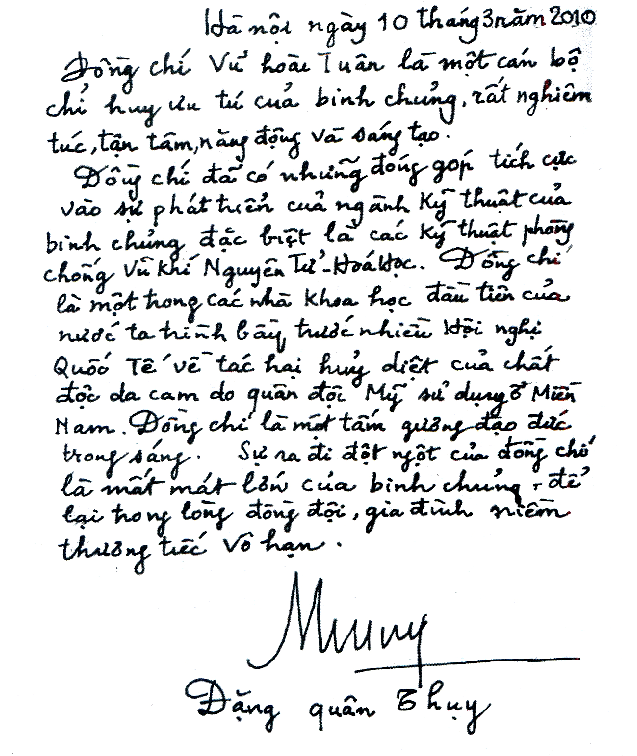 Hà nội ngày 10 tháng 3 năm 2010
Đồng chí Vũ hoài Tuân là một cán bộ
chỉ huy ưu tú của binh chủng, rất nghiêm
túc, tận tâm, năng động và sáng tạo.
Đồng chí đã có những đóng góp tích cực
vào sự phát triển của ngành Kỹ thuật của
binh chủng đặc biệt là các Kỹ thuật phòng
chống Vũ khí Nguyên Tử - Hoá Học. Đồng chí
là một trong các nhà Khoa học đầu tiên của
nước ta trình bầy trước nhiều Hội nghị
Quốc Tế về tác hại huỷ diệt của chất
độc da cam do quân đội Mỹ sử dụng ở Miền
Nam. Đồng chí là một tấm gương đạo đức
trong sáng. Sự ra đi đột ngột của đồng chí
là mất mát lớn của binh chủng, để
lại trong lòng đồng đội, gia đình niềm
thương tiếc Vô hạn.
Đặng quân Thụy